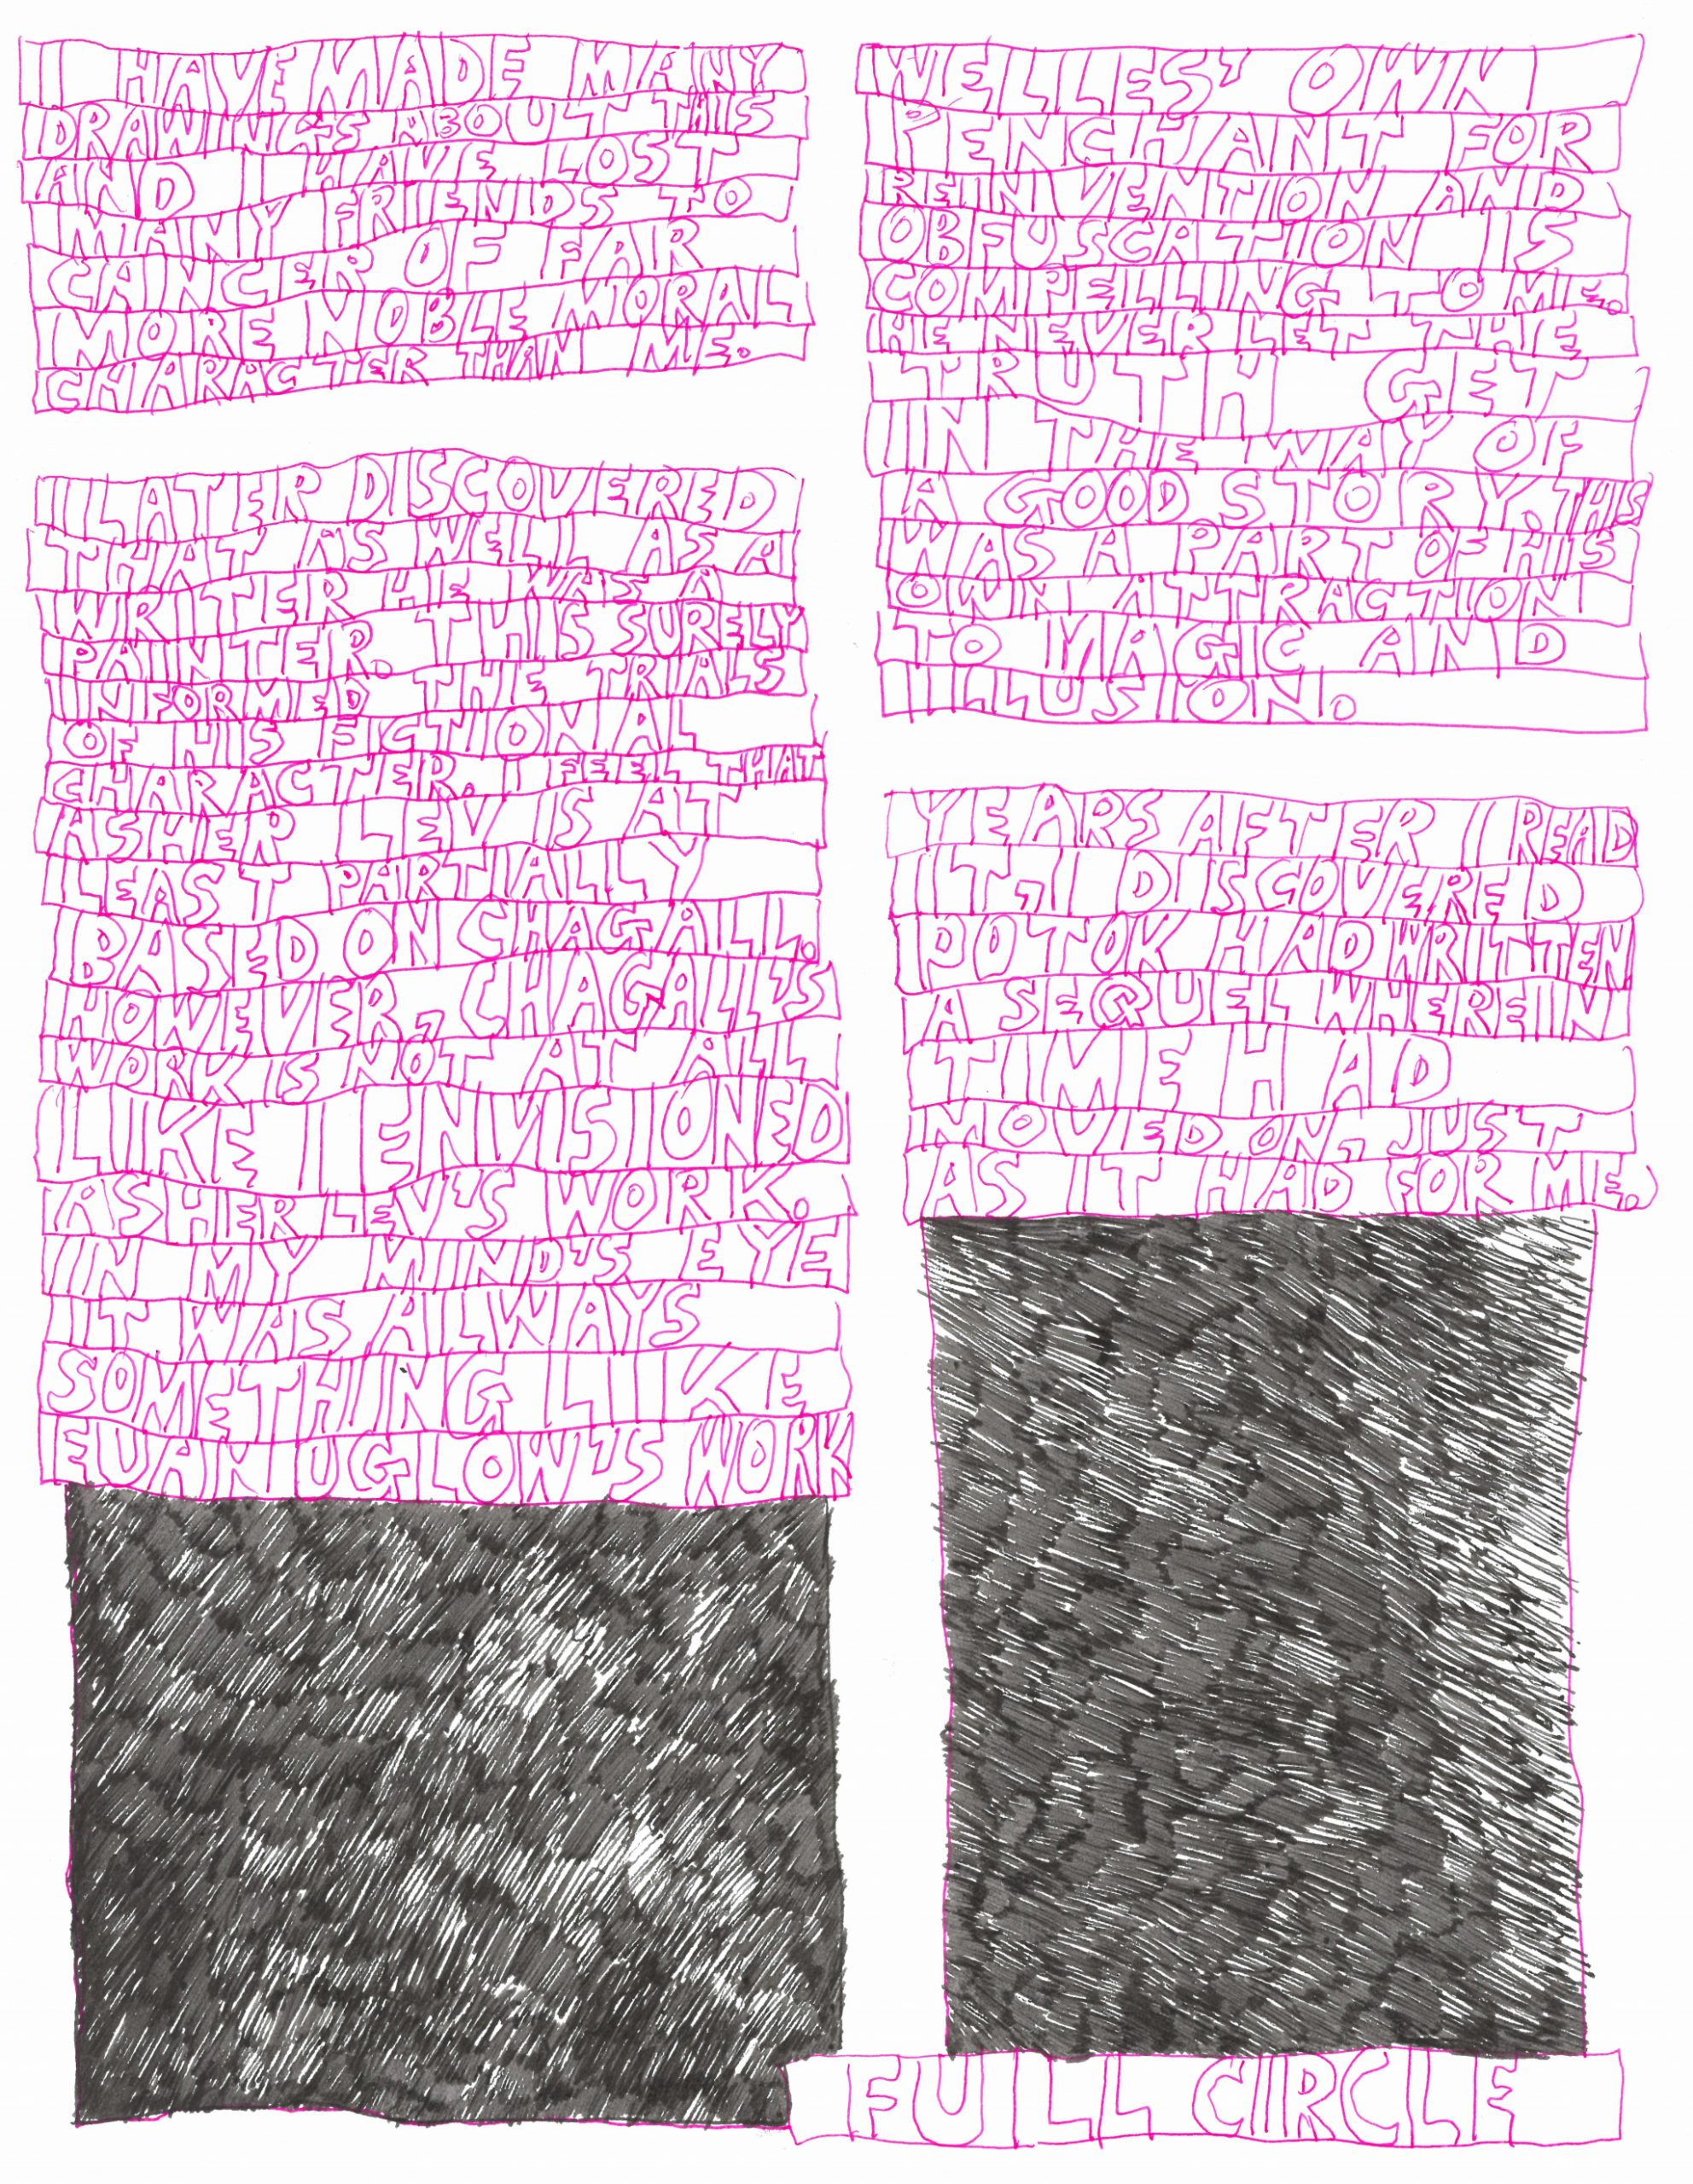 I HAVE MADE MANY
DRAWINGS ABOUT THIS
AND I HAVE LOST
MANY FRIENDS TO
CANCER OF FAR
MORE NOBLE MORAL
CHARACTER THAN ME.
I LATER DISCOVERED
THAT AS WELL AS A
WRITER HE WAS A
PAINTER. THIS SURELY
INFORMED THE TRIALS
OF HIS FICTIONAL
CHARACTER. I FEEL THAT
ASHER LEV IS AT
LEAST PARTIALLY
BASED ON CHAGALL.
HOWEVER, CHAGALL'S
WORK IS NOT AT ALL
LIKE I ENVISIONED
ASHER LEV'S WORK.
IN MY MIND'S EYE
IT WAS ALWAYS
SOMETHING LIKE
EUAN UGLOW'S WORK
WELLES' OWN
PENCHANT FOR
REINVENTION AND
OBFUSCATION IS
COMPELLING TO ME.
HE NEVER LET THE
TRUTH GET
IN THE WAY OF
A GOOD STORY. THIS
WAS A PART OF HIS
OWN ATTRACTION
TO MAGIC AND
ILLUSION.
YEARS AFTER I READ
IT, I DISCOVERED
POTOK HAD WRITTEN
A SEQUEL WHEREIN
TIME HAD
MOVED ON, JUST
AS IT HAD FOR ME.
FULL CIRCLE